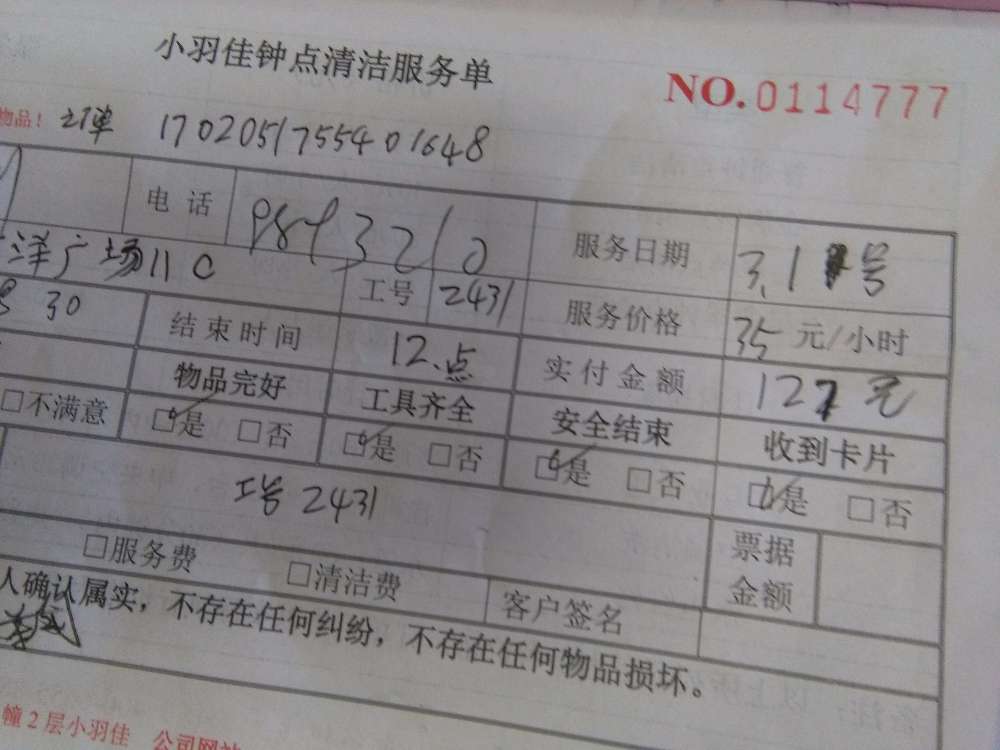 小羽佳钟点清洁服务单
NO.0114777
物品！ 订单 170205175540 01648
电 话 服务日期 3.1 号
洋广场11C 工号 2431 服务价格 35 元/小时
30 结束时间 12.点 实付金额 127 元
物品完好 工具齐全 安全结束 收到卡片
□不满意 □是 □否 □是 □否 □是 □否 □是 □否
工号 2431
□服务费 □清洁费 客户签名 票据金额
人确认属实，不存在任何纠纷，不存在任何物品损坏。
幢2层小羽佳 公司网站